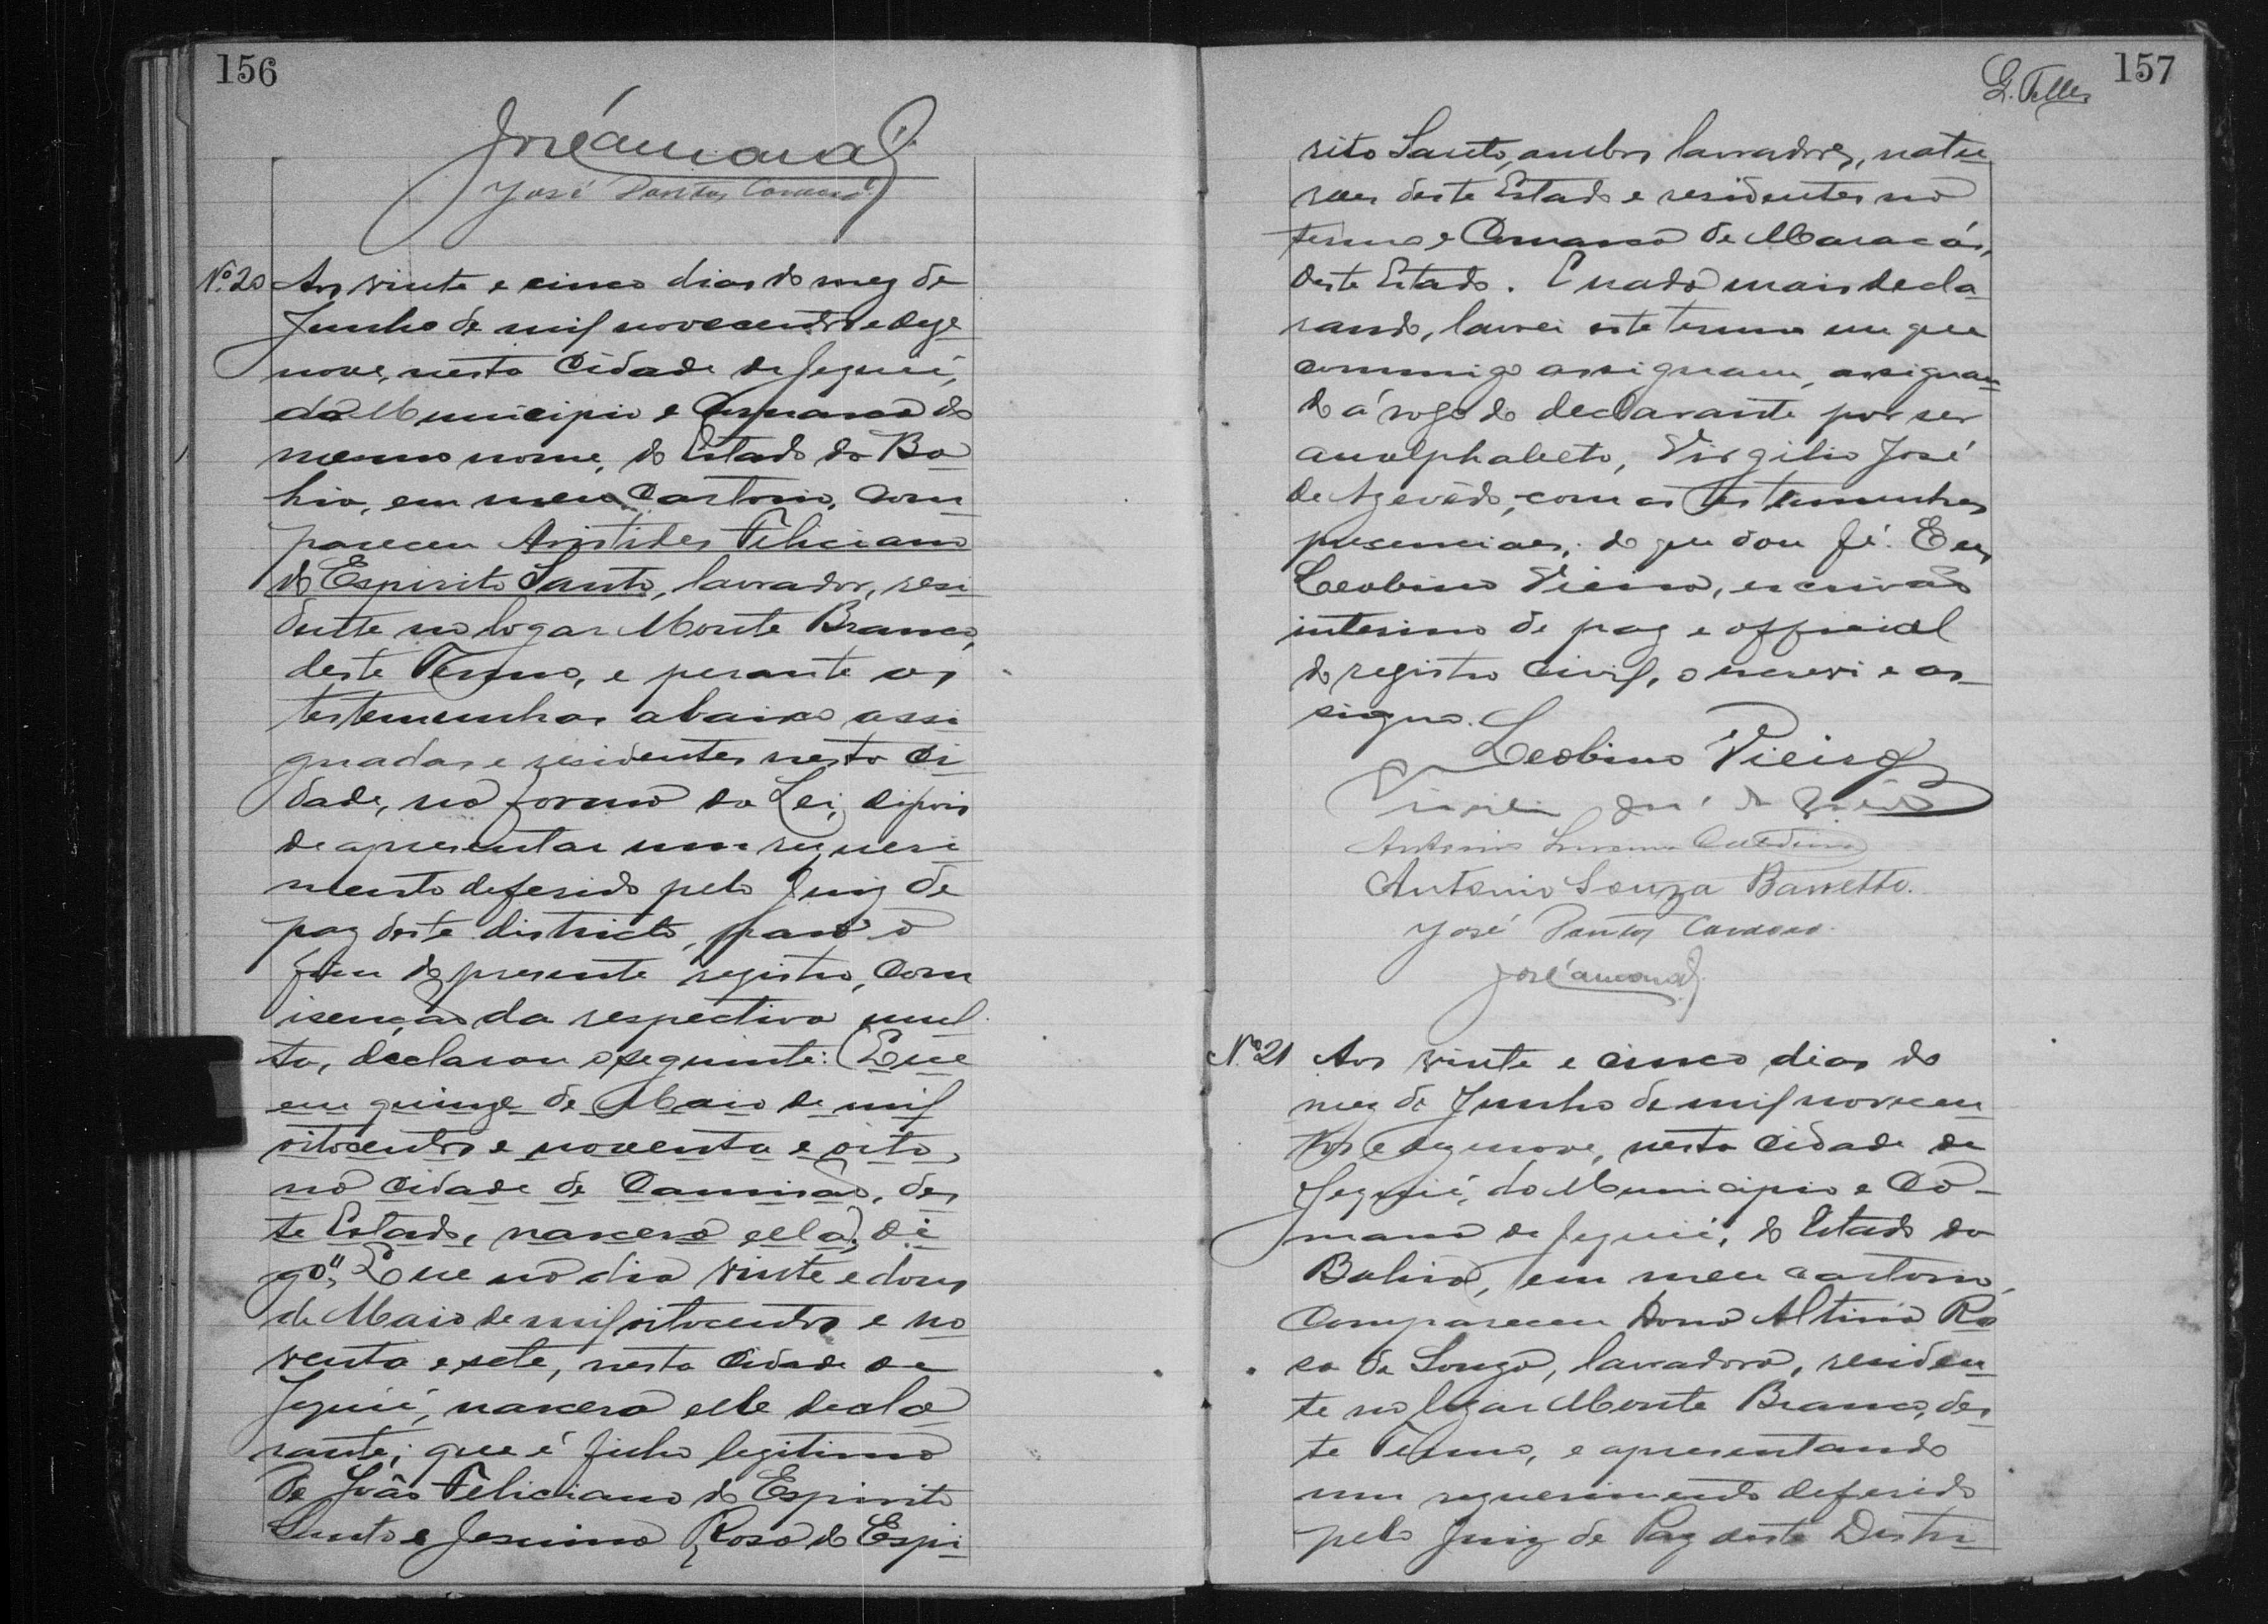 156
José Amaral
José Dantas Cardoso
Nº 20 Aos vinte e cinco dias do mez de
Junho de mil novecentos e deze
nove, nesta Cidade de Jequié,
do Municipio e Comarca do
mesmo nome, do Estado da Ba
hia, em meu Cartorio, Com
pareceu Aristides Feliciano
do Espirito Santo, lavrador, resi
dente no logar Monte Branco,
deste Termo, e perante as
testemunhas abaixo assi
gnadas e residentes nesta Ci
dade, na forma da Lei, depois
de apresentar um requeri
mento deferido pelo Juiz de
paz deste districto, para o
fim do presente registro, com
isenção da respectiva mul
ta, declarou o seguinte: Que
em quinze de Maio de mil
oitocentos e noventa e oito,
na Cidade de Camisão, des
te Estado, nascera ella, di
go", Que no dia vinte e dous
de Maio de mil oitocentos e no
venta e sete, nesta Cidade de
Jequié, nascera elle decla
rante; que é filho legitimo
de João Feliciano do Espirito
Santo e Jesuina Rosa do Espi
G. Telles
157
rito Santo, ambos lavradores, natu
raes deste Estado e residentes no
termo e Comarca de Maracás,
deste Estado. E nada mais decla
rando, lavrei este termo em que
commigo assignam, assignan
do á rogo do declarante por ser
analphabeto, Virgilio José
de Azevêdo, com as testemunhas
presenciaes; do que dou fé. Eu,
Leobino Vieira, escrivão
interino de paz e official
do registro Civil, o escrevi e as
signo.
Leobino Vieira
Virgilio José de Azevêdo
Antonio
Antonio Souza Barretto.
José Dantas Cardoso.
José Amaral
Nº 21 Aos vinte e cinco dias do
mez de Junho de mil novecen
tos e dezenove, nesta Cidade de
Jequié, do Municipio e Co-
marca de Jequié, do Estado da
Bahia, em meu cartorio,
Compareceu Dona Altina Ro
sa de Souza, lavradora, residen
te no logar Monte Branco, des
te Termo, e apresentando
um requerimento deferido
pelo Juiz de Paz deste Distri